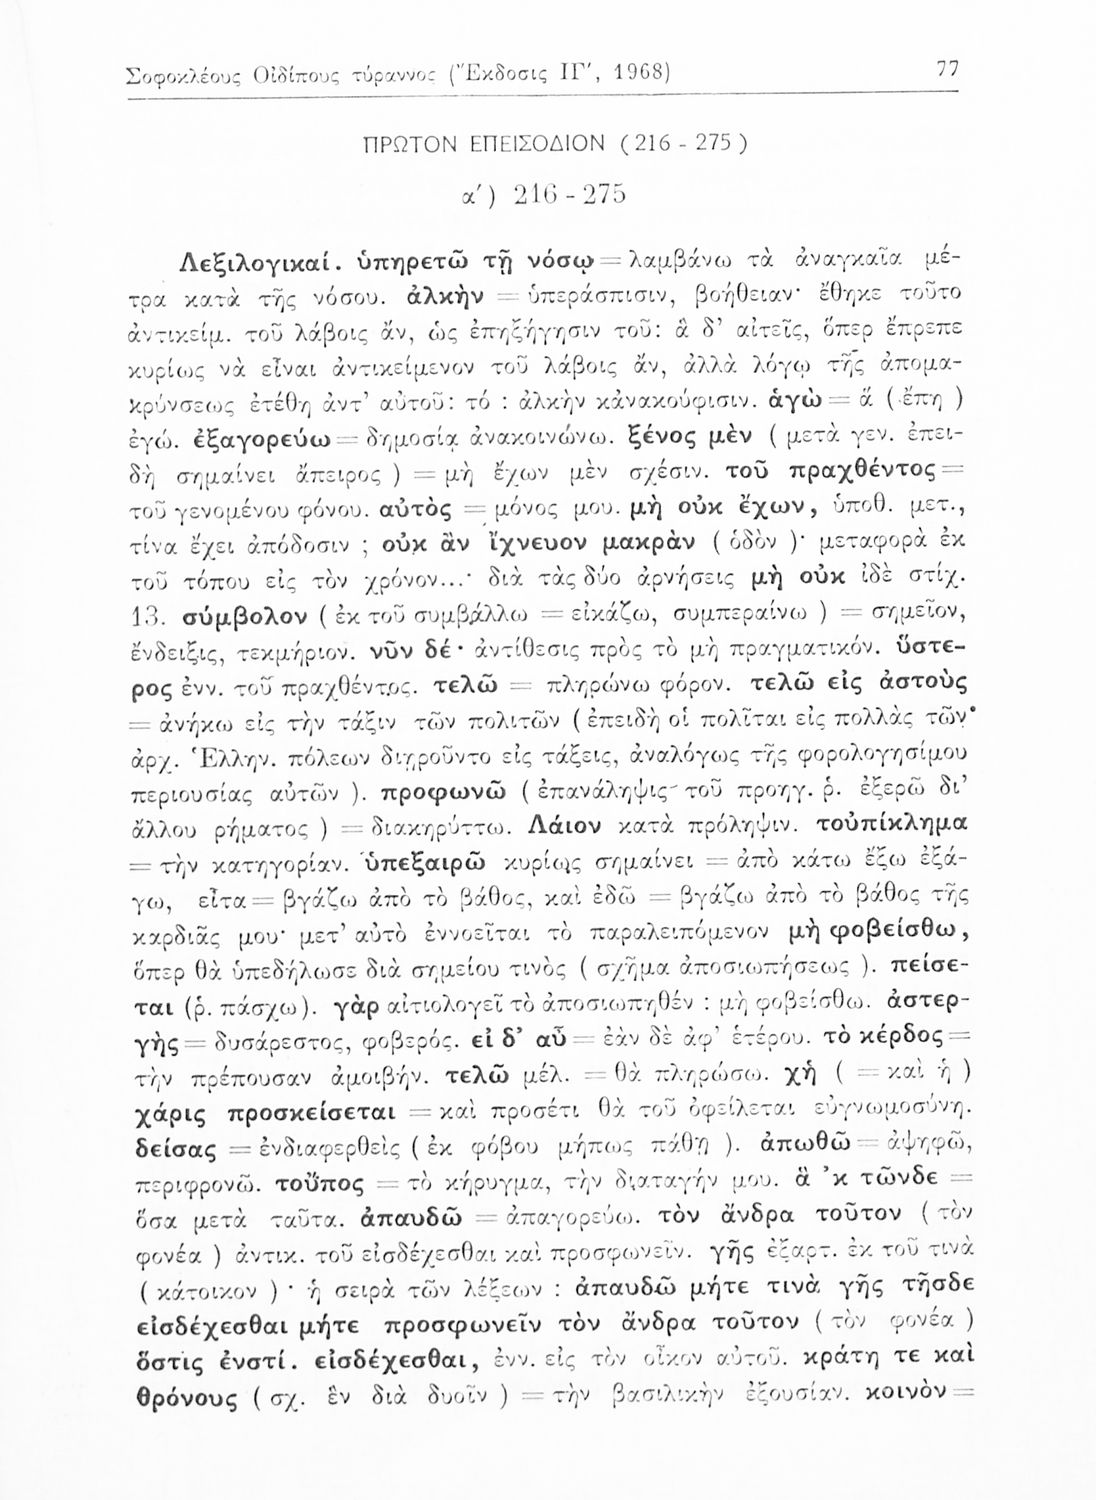 Σοφοκλέους Οἰδίπους τύραννος (Ἔκδοσις ΙΓ′, 1968)
77
ΠΡΩΤΟΝ ΕΠΕΙΣΟΔΙΟΝ (216 - 275)
α′) 216 - 275
Λεξιλογικαί. ὑπηρετῶ τῇ νόσῳ = λαμβάνω τὰ ἀναγκαῖα μέ-
τρα κατὰ τῆς νόσου. ἀλκὴν = ὑπεράσπισιν, βοήθειαν· ἔθηκε τοῦτο
ἀντικείμ. τοῦ λάβοις ἄν, ὡς ἐπηξήγησιν τοῦ: ἃ δ’ αἰτεῖς, ὅπερ ἔπρεπε
κυρίως νὰ εἶναι ἀντικείμενον τοῦ λάβοις ἄν, ἀλλὰ λόγῳ τῆς ἀπομα-
κρύνσεως ἐτέθη ἀντ’ αὐτοῦ: τό : ἀλκὴν κἀνακούφισιν. ἁγὼ = ἅ ( ἔπη )
ἐγώ. ἐξαγορεύω = δημοσίᾳ ἀνακοινώνω. ξένος μὲν ( μετὰ γεν. ἐπει-
δὴ σημαίνει ἄπειρος ) = μὴ ἔχων μὲν σχέσιν. τοῦ πραχθέντος =
τοῦ γενομένου φόνου. αὐτὸς = μόνος μου. μὴ οὐκ ἔχων, ὑποθ. μετ.,
τίνα ἔχει ἀπόδοσιν ; οὐκ ἂν ἴχνευον μακρὰν ( ὁδὸν )· μεταφορὰ ἐκ
τοῦ τόπου εἰς τὸν χρόνον...· διὰ τὰς δύο ἀρνήσεις μὴ οὐκ ἰδὲ στίχ.
13. σύμβολον ( ἐκ τοῦ συμβάλλω = εἰκάζω, συμπεραίνω ) = σημεῖον,
ἔνδειξις, τεκμήριον. νῦν δέ· ἀντίθεσις πρὸς τὸ μὴ πραγματικόν. ὕστε-
ρος ἐνν. τοῦ πραχθέντος. τελῶ = πληρώνω φόρον. τελῶ εἰς ἀστοὺς
= ἀνήκω εἰς τὴν τάξιν τῶν πολιτῶν ( ἐπειδὴ οἱ πολῖται εἰς πολλὰς τῶν
ἀρχ. Ἑλλην. πόλεων διῃροῦντο εἰς τάξεις, ἀναλόγως τῆς φορολογησίμου
περιουσίας αὐτῶν ). προφωνῶ ( ἐπανάληψις τοῦ προηγ. ῥ. ἐξερῶ δι’
ἄλλου ρήματος ) = διακηρύττω. Λάιον κατὰ πρόληψιν. τοὐπίκλημα
= τὴν κατηγορίαν. ὑπεξαιρῶ κυρίως σημαίνει = ἀπὸ κάτω ἔξω ἐξά-
γω, εἶτα = βγάζω ἀπὸ τὸ βάθος, καὶ ἐδῶ = βγάζω ἀπὸ τὸ βάθος τῆς
καρδιᾶς μου· μετ’ αὐτὸ ἐννοεῖται τὸ παραλειπόμενον μὴ φοβείσθω,
ὅπερ θὰ ὑπεδήλωσε διὰ σημείου τινὸς ( σχῆμα ἀποσιωπήσεως ). πείσε-
ται (ῥ. πάσχω). γὰρ αἰτιολογεῖ τὸ ἀποσιωπηθέν : μὴ φοβείσθω. ἀστερ-
γὴς = δυσάρεστος, φοβερός. εἰ δ’ αὖ = ἐὰν δὲ ἀφ’ ἑτέρου. τὸ κέρδος =
τὴν πρέπουσαν ἀμοιβήν. τελῶ μέλ. = θὰ πληρώσω. χἠ ( = καὶ ἡ )
χάρις προσκείσεται = καὶ προσέτι θὰ τοῦ ὀφείλεται εὐγνωμοσύνη.
δείσας = ἐνδιαφερθεὶς ( ἐκ φόβου μήπως πάθῃ ). ἀπωθῶ = ἀψηφῶ,
περιφρονῶ. τοὔπος = τὸ κήρυγμα, τὴν διαταγήν μου. ἃ ’κ τῶνδε =
ὅσα μετὰ ταῦτα. ἀπαυδῶ = ἀπαγορεύω. τὸν ἄνδρα τοῦτον ( τὸν
φονέα ) ἀντικ. τοῦ εἰσδέχεσθαι καὶ προσφωνεῖν. γῆς ἐξαρτ. ἐκ τοῦ τινὰ
( κάτοικον ) · ἡ σειρὰ τῶν λέξεων : ἀπαυδῶ μήτε τινὰ γῆς τῆσδε
εἰσδέχεσθαι μήτε προσφωνεῖν τὸν ἄνδρα τοῦτον ( τὸν φονέα )
ὅστις ἐνστί. εἰσδέχεσθαι, ἐνν. εἰς τὸν οἶκον αὐτοῦ. κράτη τε καὶ
θρόνους ( σχ. ἓν διὰ δυοῖν ) = τὴν βασιλικὴν ἐξουσίαν. κοινὸν =